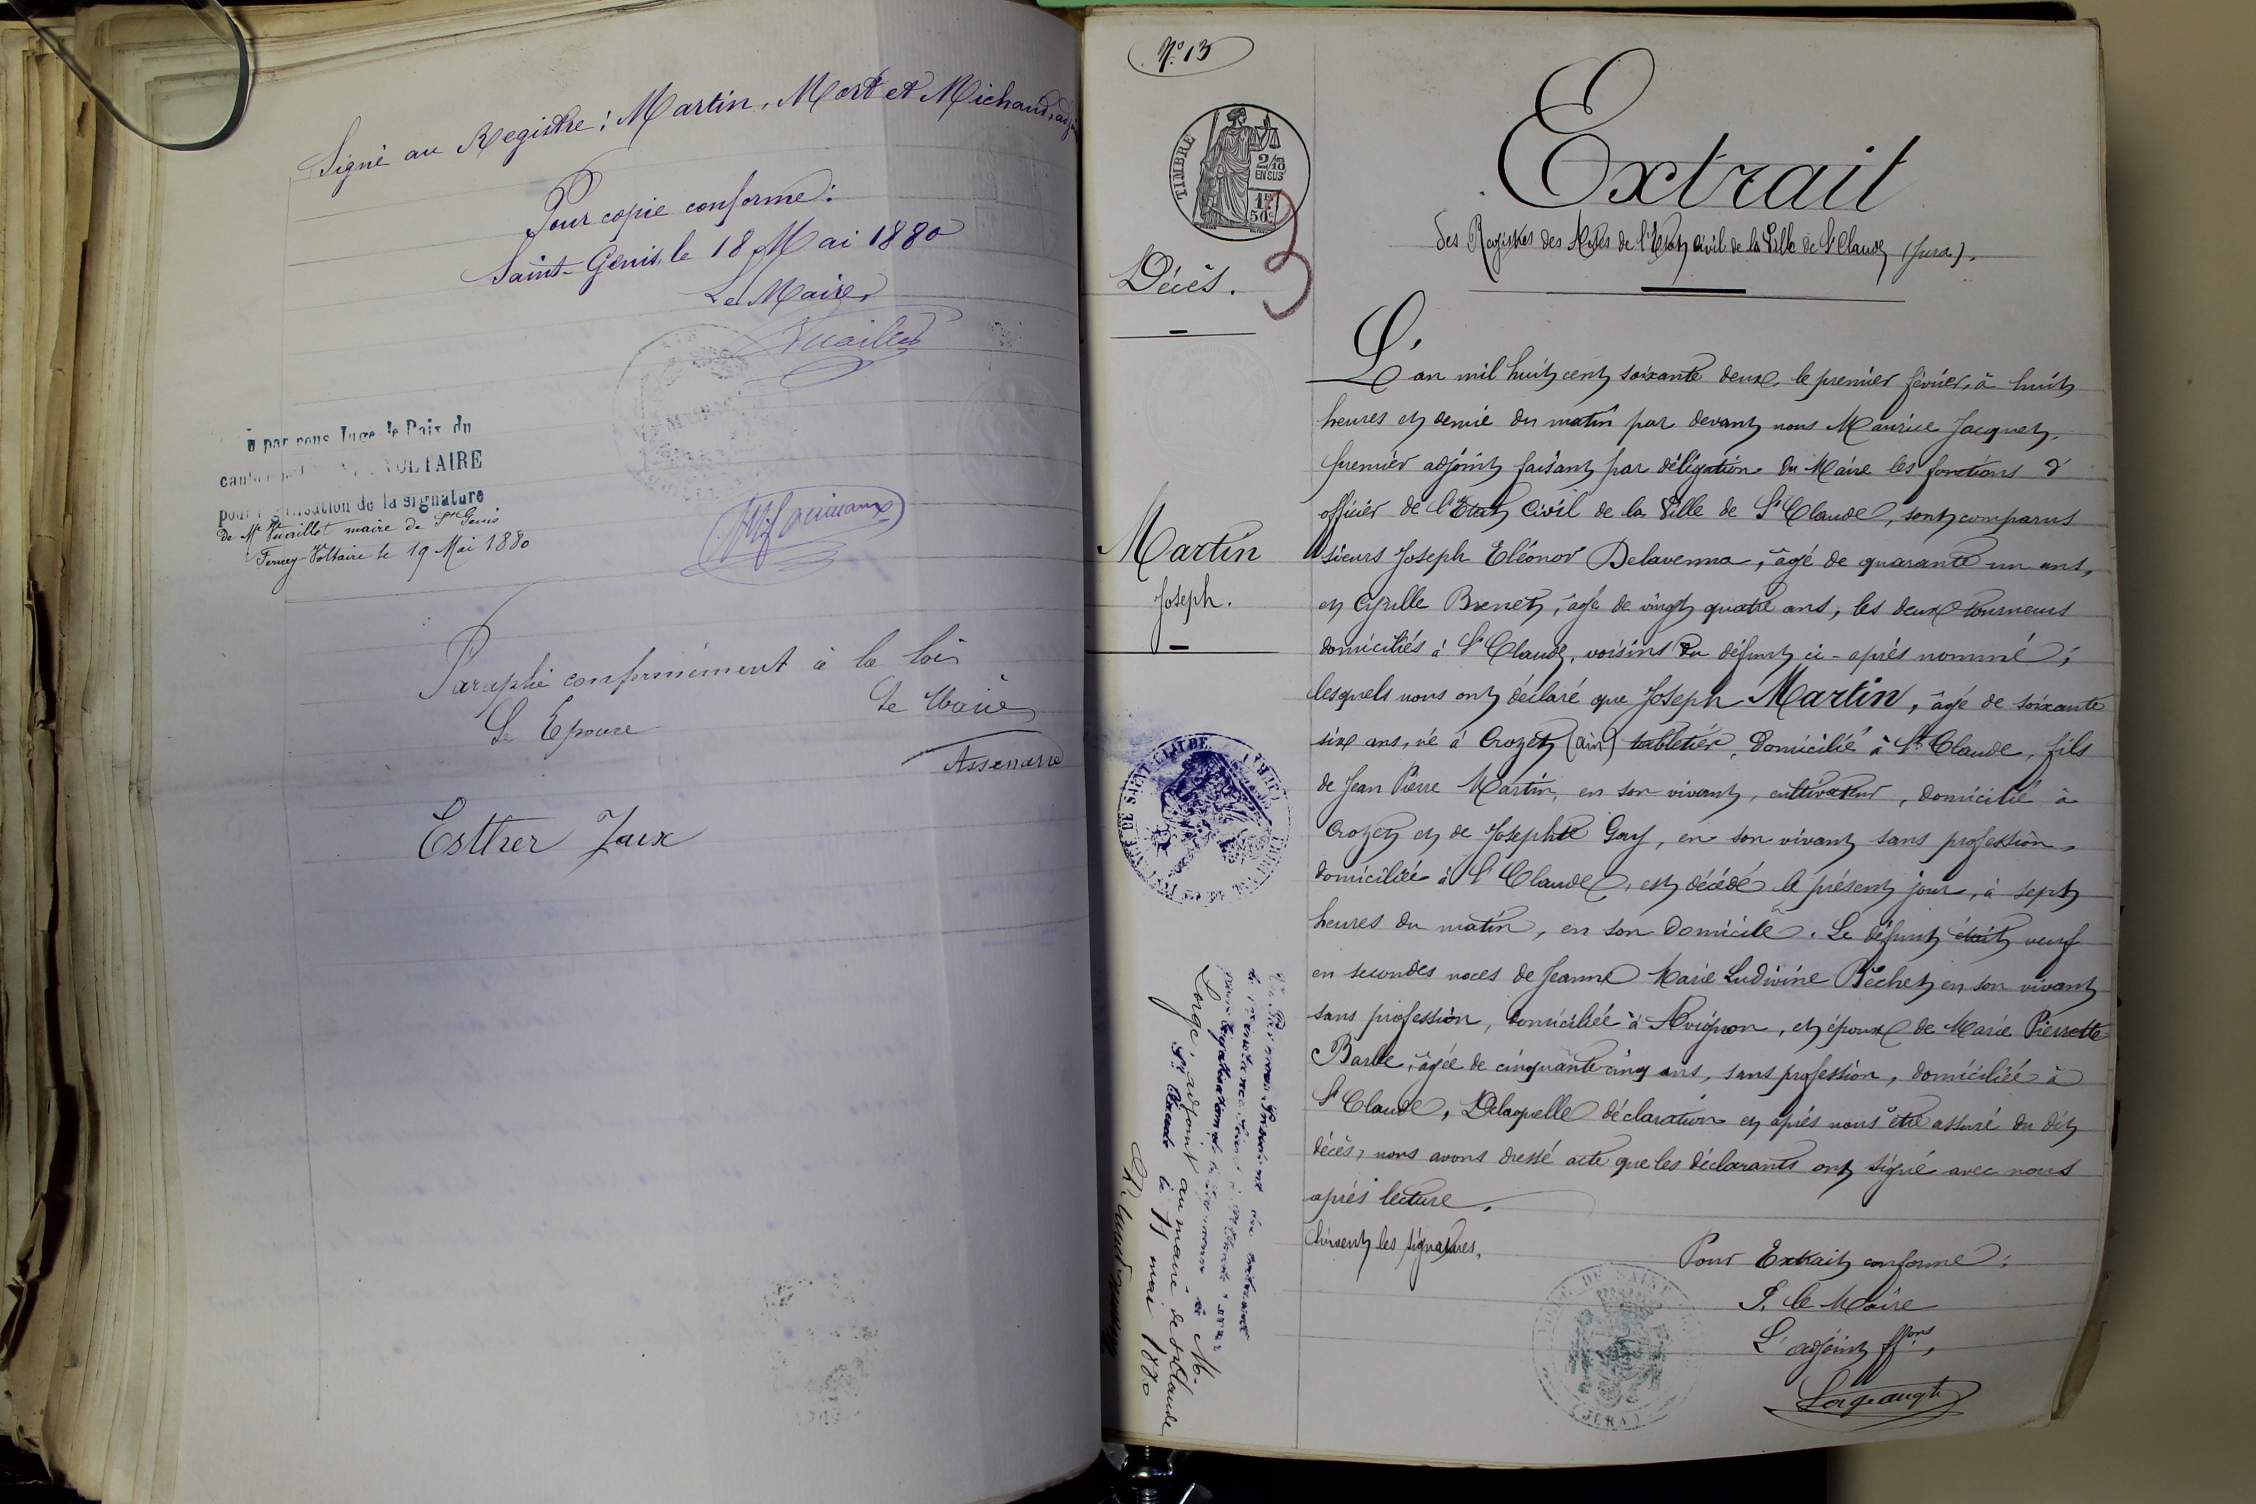 Signé au Registre: Martin, Mort et Michaud, adj
Pour copie conforme:
Saint-Genis, le 18 Mai 1880
Le Maire
Vuaillet
par nous Juge de Paix du
canton VOLTAIRE
pour légalisation de la signature
De Mr Vuaillet maire de St Genis
Ferney-Voltaire le 19 Mai 1880
Paraphé conformément à la loi
Le Maire
Le Epouse
Esther Jaix
N° 13
TIMBRE
2/10
EN SUS
1F
50c
3
Décès.
Martin
Joseph.
Extrait
des Registres des Actes de l'Etat civil de la Ville de St Claude (Jura).
L'an mil huit cent soixante deux, le premier février, à huit
heures et demie du matin par devant nous Maurice Jacquet,
premier adjoint faisant par délégation du Maire les fonctions d'
officier de l'Etat Civil de la Ville de St Claude, sont comparus
sieurs Joseph Eléonor Delavenna, âgé de quarante un ans,
et Cyrille Brenet, âgé de vingt quatre ans, les deux tourneurs
domiciliés à St Claude, voisins du défunt ci-après nommé;
lesquels nous ont déclaré que Joseph Martin, âgé de soixante
six ans, né à Crozet (ain) tabletier, domicilié à St Claude, fils
de Jean Pierre Martin, en son vivant, cultivateur, domicilié à
Crozet et de Josephte Gay, en son vivant sans profession,
domiciliée à St Claude, est décédé le présent jour, à sept
heures du matin, en son domicile. Le défunt était veuf
en secondes noces de Jeanne Marie Ludivine Béchet en son vivant
sans profession, domiciliée à Avignon, et époux de Marie Pierrette
Barbe, âgée de cinquante cinq ans, sans profession, domiciliée à
St Claude, Delaquelle déclaration et après nous être assuré du dit
décès, nous avons dressé acte que les déclarants ont signé avec nous
après lecture.
Suivent les signatures.
Pour Extrait conforme:
P. le Maire
L'adjoint ffons,
(JURA)
Lorge, adjoint au maire de St Claude
St Claude le 11 mai 1880